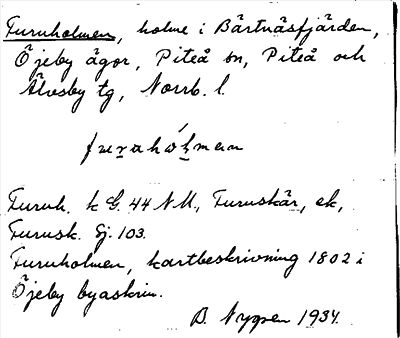 Furuholmen, holme i Bärtnäsfjärden,
Öjeby ägor, Piteå sn, Piteå och
Älvsby tg, Norrb. l.
furahólman
Furuh. k G. 44 NM., Furuskär, ek,
Furusk. Sj. 103.
Furuholmen, kartbeskrivning 1802 i
Öjeby byaskrin.
B. Nygren 1934.